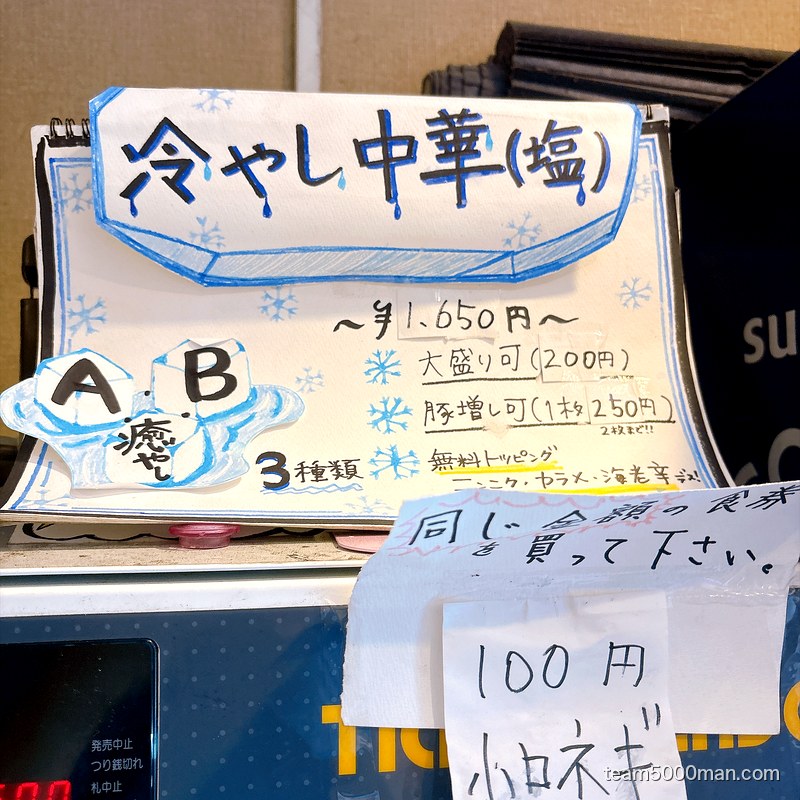 冷やし中華(塩)
～¥1,650円～
大盛り可(200円)
豚増し可(1枚250円)
2枚まで!!
A・B・
癒やし
3種類
無料トッピング
ニンニク・カラメ・海老辛デス!
同じ金額の食券
を買って下さい。
100円
小口ネギ
su
発売中止
つり銭切れ
札中止
team5000man.com